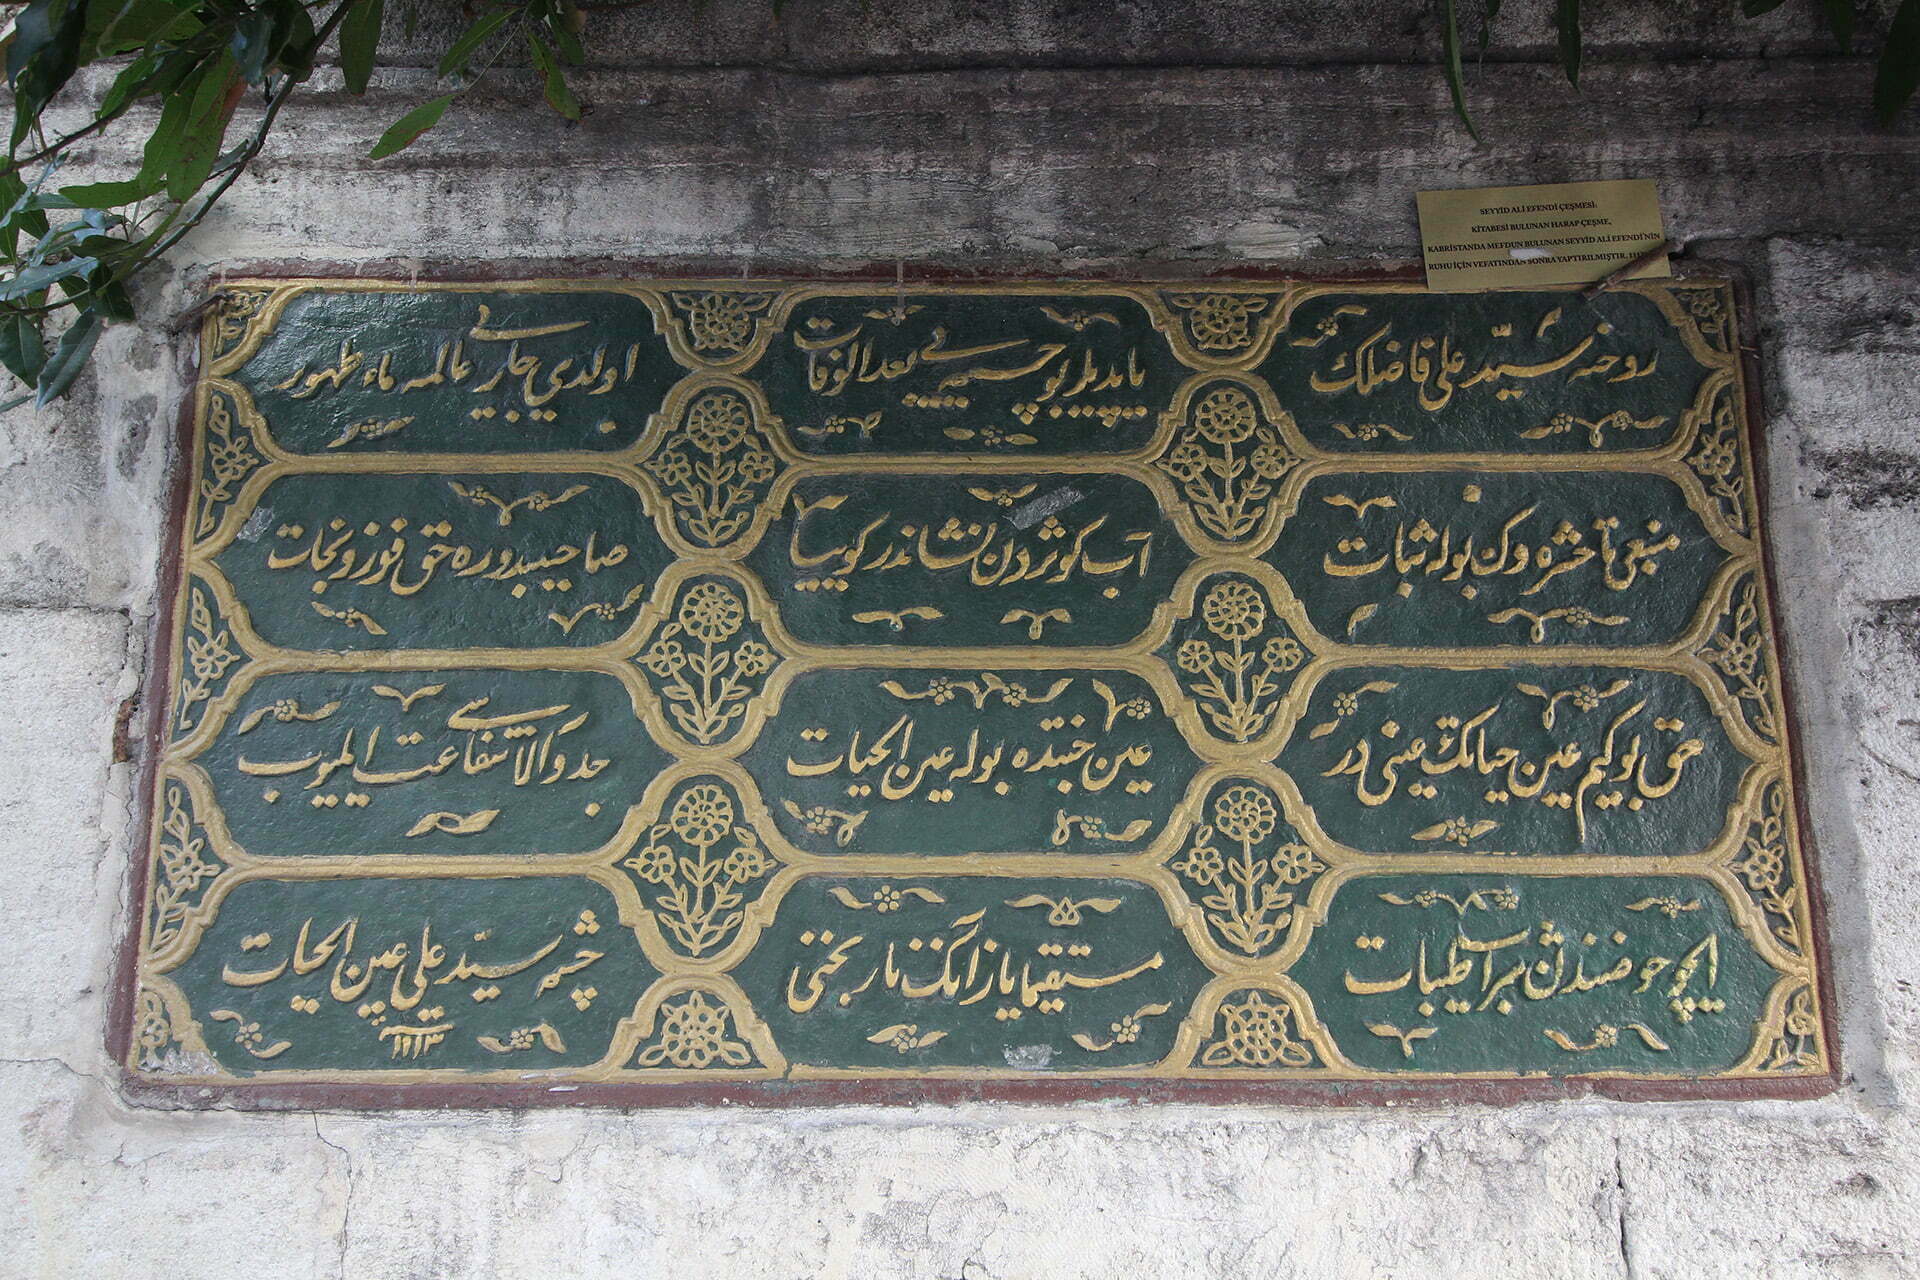 SEYYİD ALİ EFENDİ ÇEŞMESİ:
KİTABESİ BULUNAN HARAP ÇEŞME,
KABRİSTANDA MEFDUN BULUNAN SEYYİD ALİ EFENDİ'NİN
RUHU İÇİN VEFATINDAN SONRA YAPTIRILMIŞTIR.
روحنه سيّد علی فاضلك
ياپديلر بو چشمه‌يی بعد الوفات
اولدی جاری عالمه ماء طهور
منبعی تا حشره دكن بوله ثبات
آب كوثردن نشاندر كوييا
صاحبيدر ره حق فوز و نجات
حق بو كيم عين حياتك عينی در
عين جنتده بوله عين الحيات
ايچوب حوضندن
مستقيما يازانك تاريخنی
چشمه سيّد علی عين الحيات
١١١٣